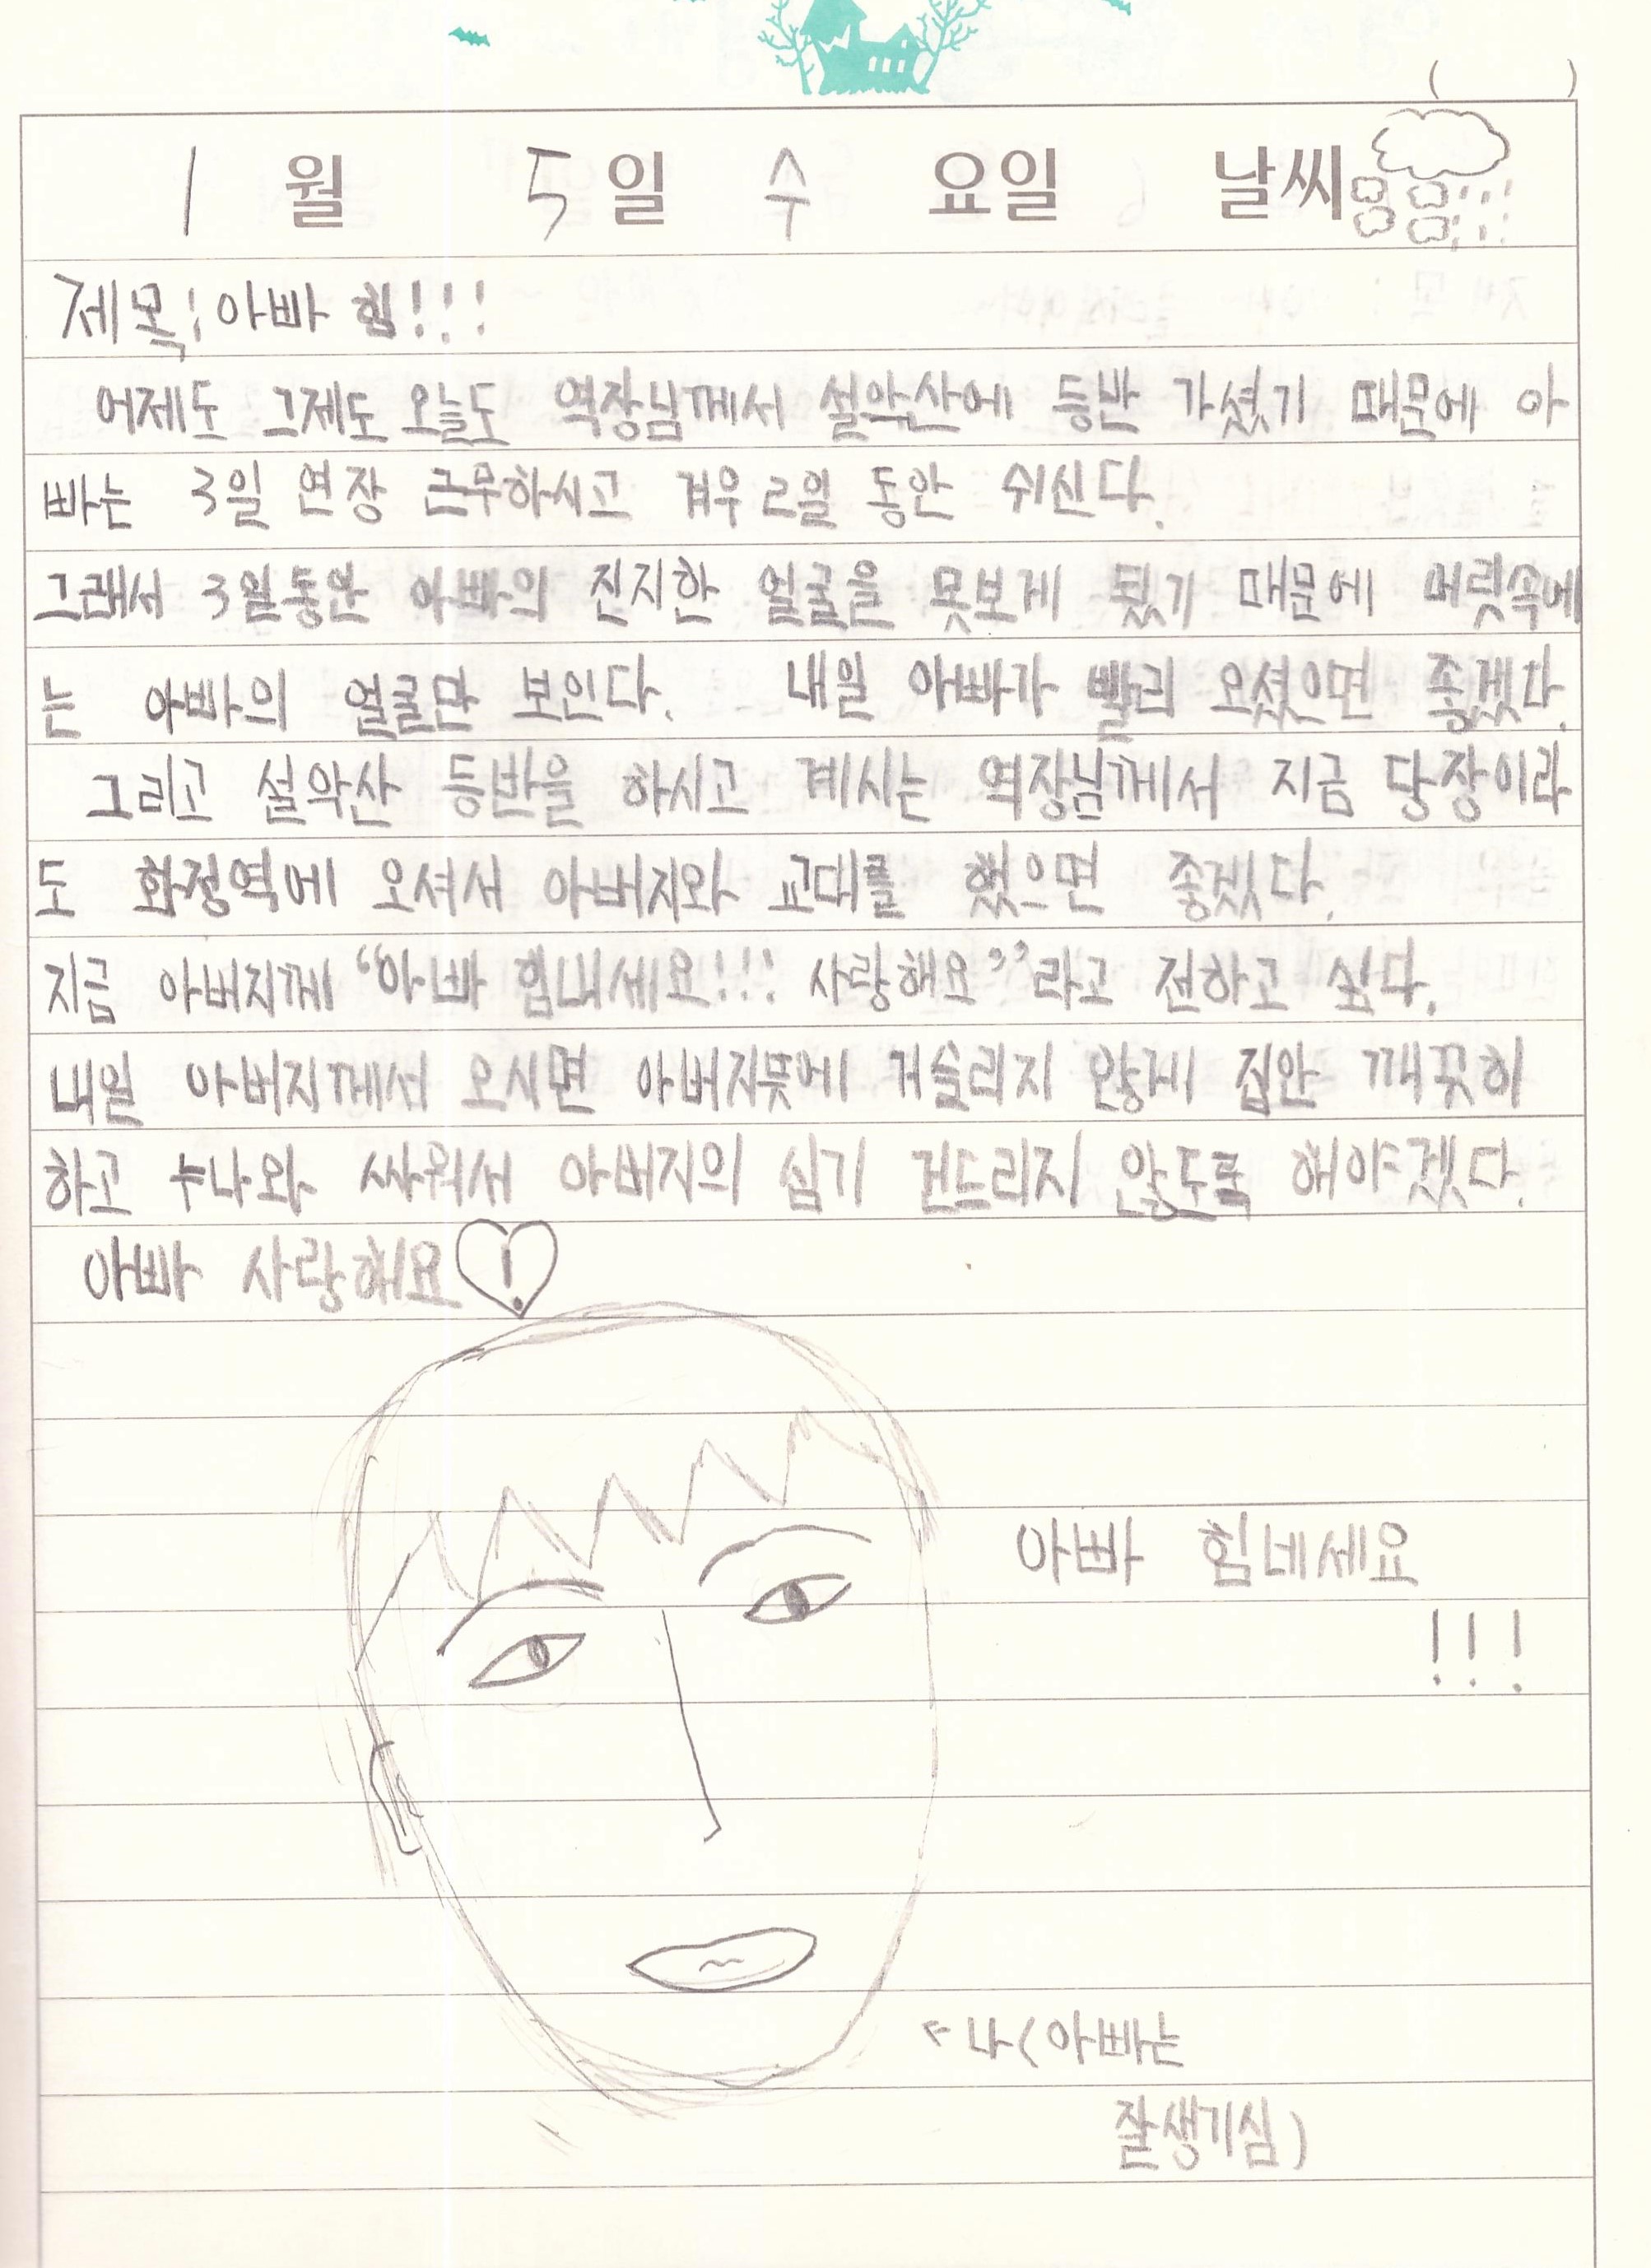 ( )
1월 5일 수요일 날씨
제목! 아빠 힘!!!
어제도 그제도 오늘도 역장님께서 설악산에 등반 가셨기 때문에 아
빠는 3일 연장 근무하시고 겨우 2일 동안 쉬신다.
그래서 3일동안 아빠의 진지한 얼굴을 못보게 됬기 때문에 머릿속에
는 아빠의 얼굴만 보인다. 내일 아빠가 빨리 오셨으면 좋겠다.
그리고 설악산 등반을 하시고 계시는 역장님께서 지금 당장이라
도 화정역에 오셔서 아버지와 교대를 했으면 좋겠다.
지금 아버지께 “아빠 힘내세요!!! 사랑해요”라고 전하고 싶다.
내일 아버지께서 오시면 아버지뜻에 거슬리지 않게 집안 깨끗히
하고 누나와 싸워서 아버지의 심기 건드리지 않도록 해야겠다.
아빠 사랑해요!
아빠 힘네세요
!!!
나(아빠는
잘생기심)